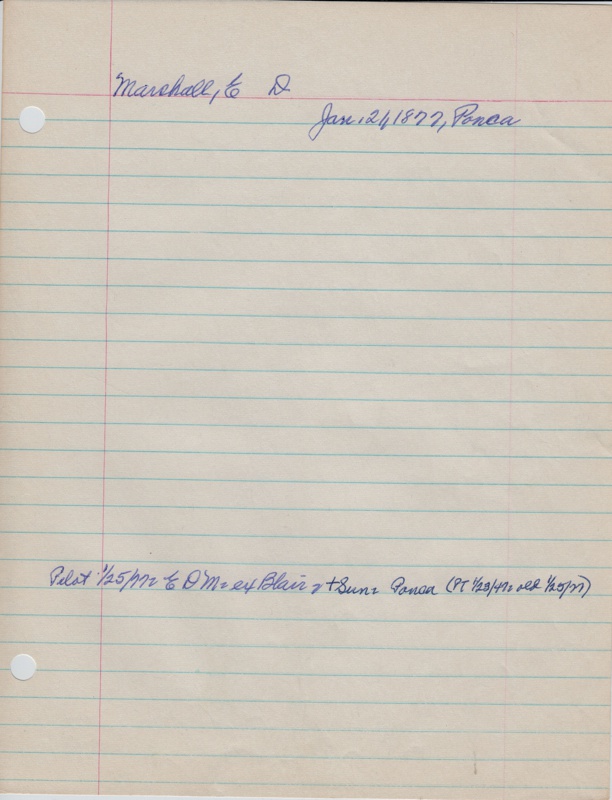 Marshall, E D
Jan. 24, 1877, Ponca
Pilot 1/25/77: E D M: ex Blair + Sun: Ponca (PT 1/23/ old 1/25/77)